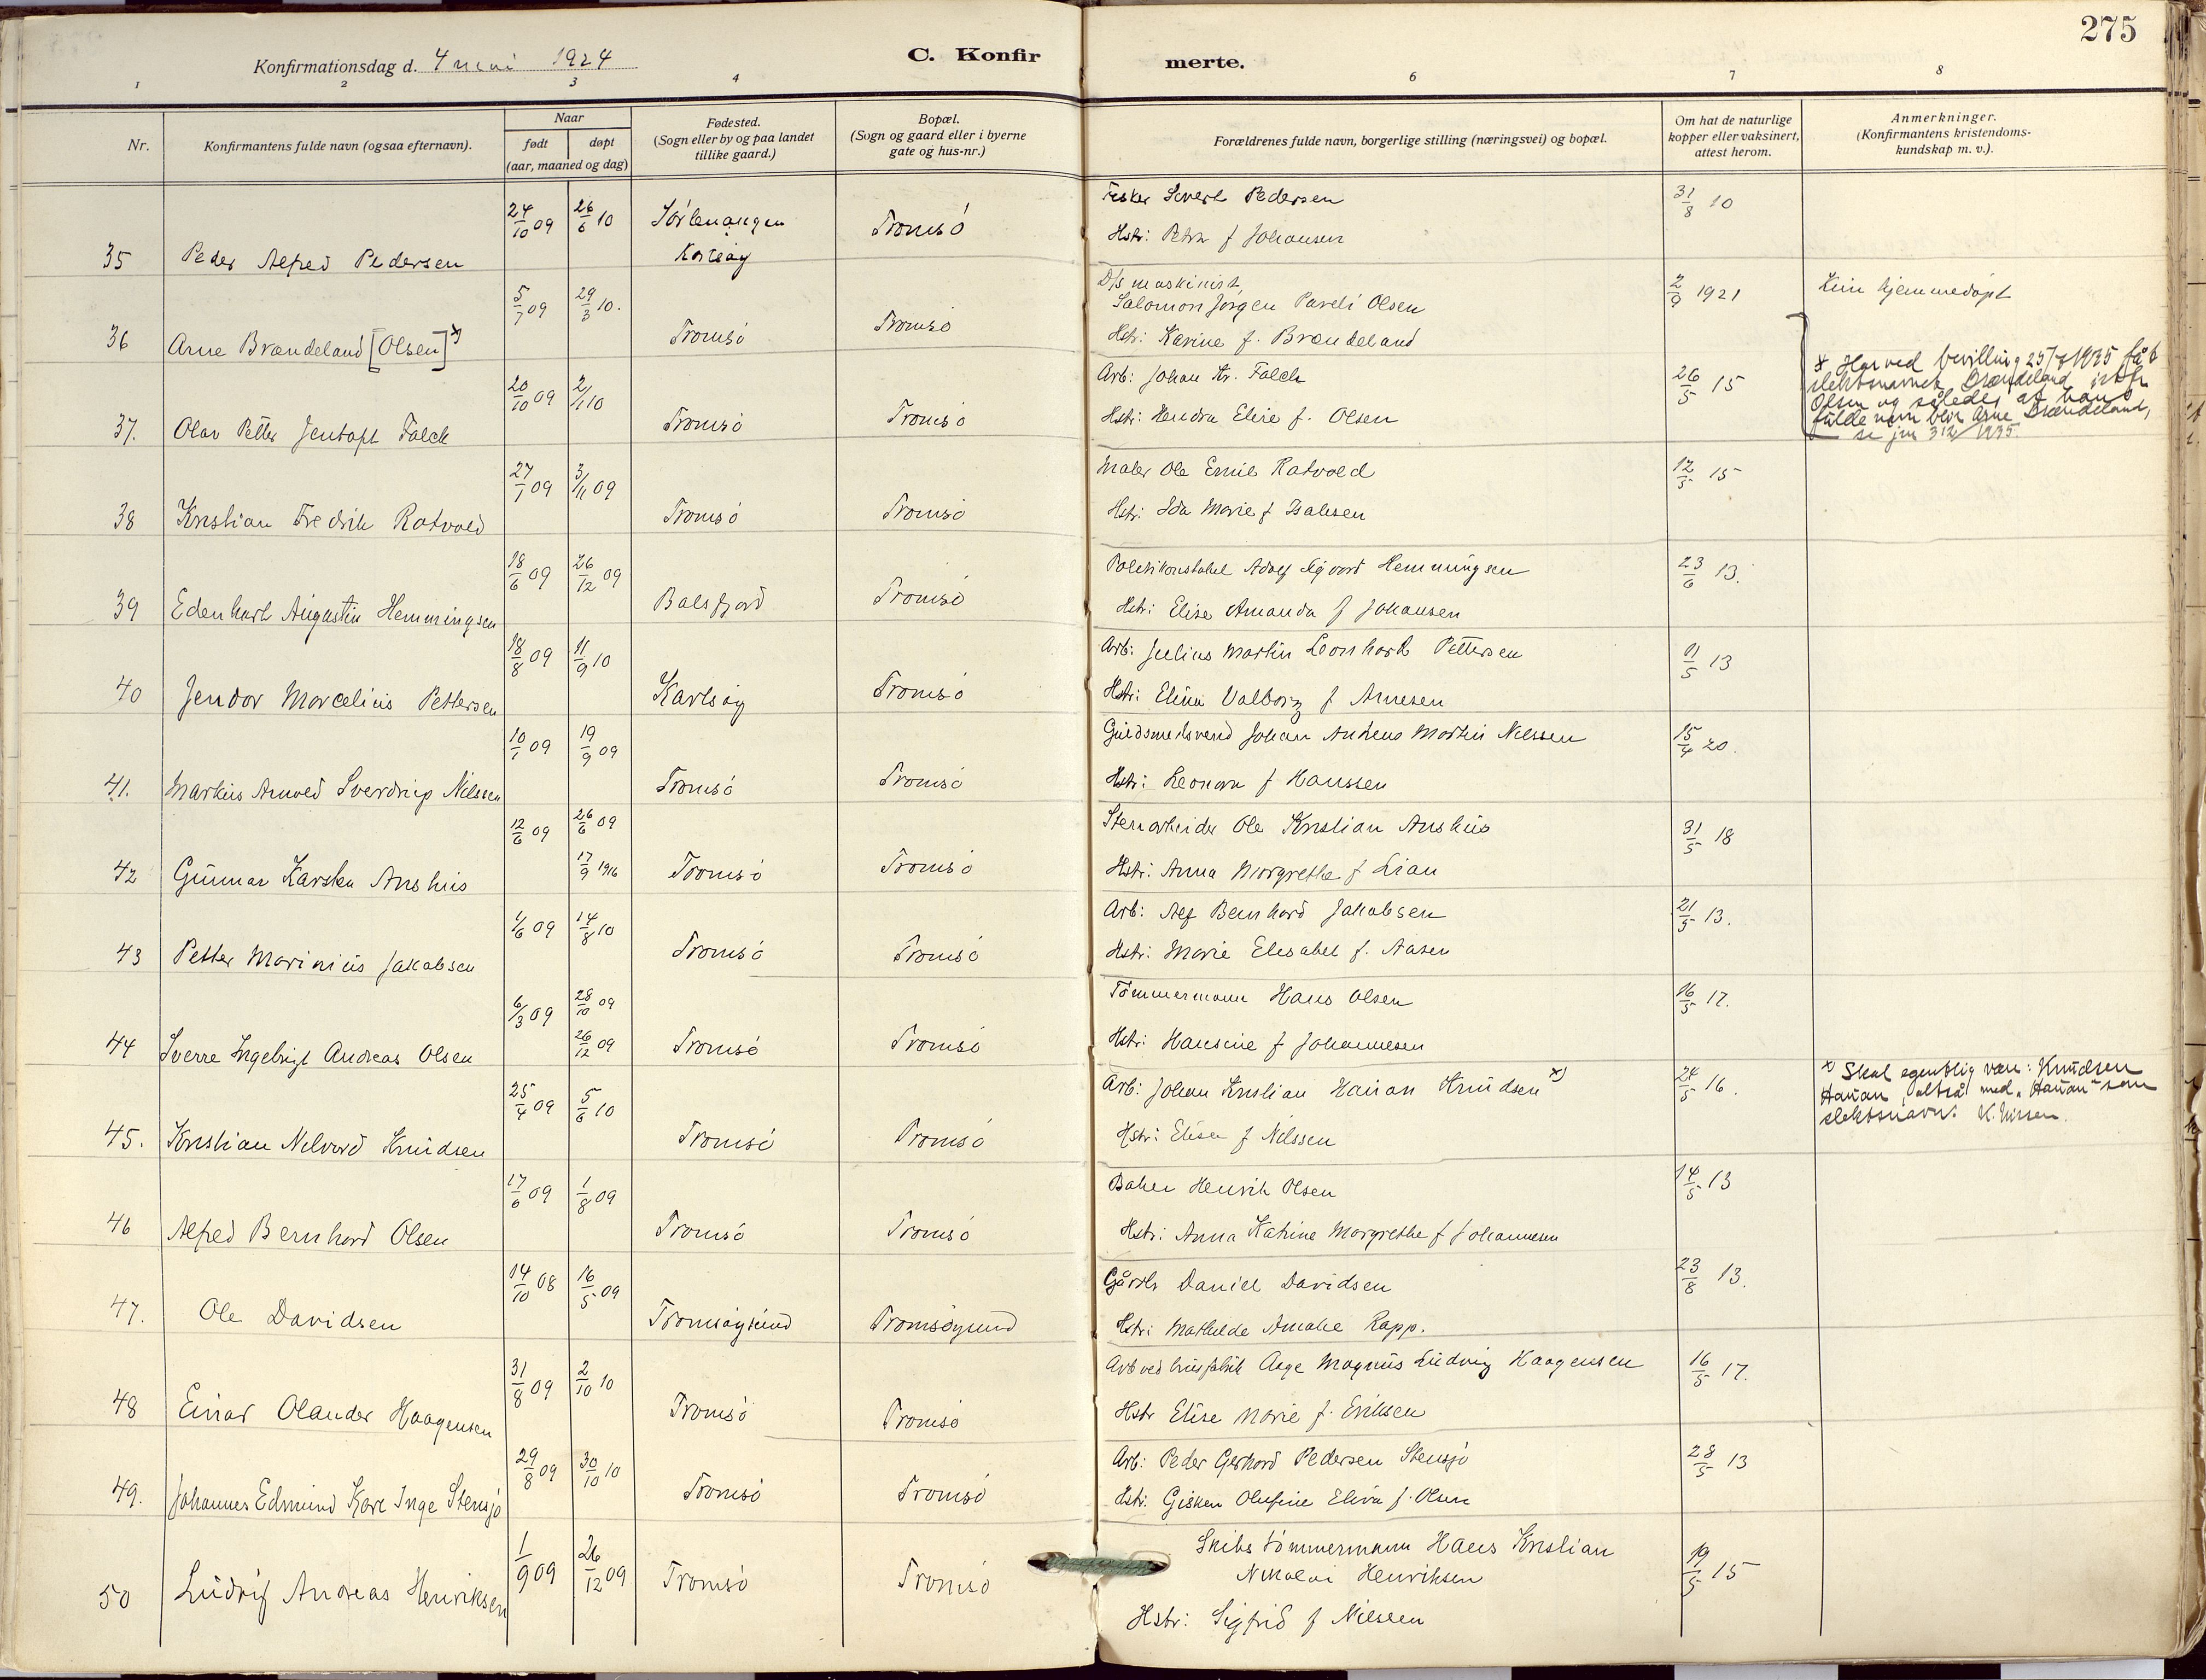 275
Konfirmationsdag d. 4 mai 1924
C. Konfirmerte.
1 2 3 4 6 7 8
Nr.
Konfirmantens fulde navn (ogsaa efternavn).
Naar
født døpt
(aar, maaned og dag)
Fødested.
(Sogn eller by og paa landet
tillike gaard.)
Bopæl.
(Sogn og gaard eller i byerne
gate og hus-nr.)
Forældrenes fulde navn, borgerlige stilling (næringsvei) og bopæl.
Om hat de naturlige
kopper eller vaksinert,
attest herom.
Anmerkninger.
(Konfirmantens kristendoms-
kundskap m. v.).
35 Peder Alfred Pedersen 24/10 09 26/6 10 Sörlenangen Karlsøy Tromsö
Fisker Severt Pedersen 31/8 10
Hstr: Petra f Johansen
36 Arne Brændeland [Olsen] x) 5/7 09 29/3 10. Tromsö Tromsö
D/s maskinist,
Salomon Jørgen Pareli Olsen 2/9 1921 Kun hjemmedöpt
Hstr: Karine f. Brændeland
x Har ved bevilling 25/7 1935 fåt
slektsnavnet Brændeland istf.
Olsen og således at hans
fulde navn blir Arne Brændeland,
se jnr 312/1935.
37. Olav Petter Jentoft Falck 20/10 09 2/11 10 Tromsö Tromsö
Arb: Johan Kr. Falck 26/5 15
Hstr: Hendra Elise f. Olsen
38 Kristian Fredrik Rotvold 27/1 09 3/11 09 Tromsö Tromsö
Maler Ole Emil Rotvold 12/5 15
Hstr: Ida Marie f Isaksen
39 Edenhart Augustin Hemmingsen 18/6 09 26/12 09 Balsfjord Tromsö
Politikonstabel Adolf Sigvard Hemmingsen 23/6 13.
Hstr: Elise Amanda f Johansen
40 Jendor Marcelius Pettersen 18/8 09 11/9 10 Karlsøy Tromsö
Arb: Julius Martin Leonhard Pettersen 11/5 13
Hstr: Elina Valborg f Arnesen
41. Markus Arnold Sverdrup Nilssen 10/1 09 19/9 09 Tromsö Tromsö
Guldsmedsvend Johan Antheus Martin Nilssen 15/4 20.
Hstr: Leonora f Hanssen
42 Gunnar Karsten Anshus 12/6 09 26/6 09 17/9 1916 Tromsö Tromsö
Stenarbeider Ole Kristian Anshus 31/5 18
Hstr: Anna Margrethe f Lian
43 Petter Marinius Jakobsen 1/6 09 14/8 10 Tromsö Tromsö
Arb: Alf Bernhard Jakobsen 21/5 13.
Hstr: Marie Elisabet f. Aasen
44 Sverre Ingebrigt Andreas Olsen 6/3 09 28/10 09 26/12 09 Tromsö Tromsö
Tömmermann Hans Olsen 16/5 17.
Hstr: Hansine f Johannesen
45. Kristian Nilvard Knudsen 25/4 09 5/6 10 Tromsö Tromsö
Arb: Johan Kristian Hauan Knudsen x) 24/5 16.
Hstr: Elisa f Nilssen
x) Skal egentlig være: Knudsen
Hauan, altså med "Hauan" som
slektsnavn. K. Nissen.
46 Alfred Bernhard Olsen 17/6 09 1/8 09 Tromsö Tromsö
Baker Henrik Olsen 14/5 13
Hstr: Anna Katrine Margrethe f Johannesen
47. Ole Davidsen 14/10 08 16/5 09 Tromsøysund Tromsøysund
Gårdbr Daniel Davidsen 23/8 13.
Hstr: Mathilde Amalie Rapp.
48 Einar Olander Haagensen 31/8 09 2/10 10 Tromsö Tromsö
Arb ved Aage Magnus Ludvig Haagensen 16/5 17.
Hstr Elise Marie f. Eriksen
49. Johannes Edmund Kare Inge Stensjö 29/8 09 30/10 10 Tromsö Tromsö
Arb: Peder Gerhard Pedersen Stensjö 28/5 13
Hstr: Gisken Olufine Eliva f. Olsen
50 Ludvig Andreas Henriksen 1/9 09 26/12 09 Tromsö Tromsö
Skibstömmermann Hans Kristian
Nikolai Henriksen 19/5 15
Hstr: Sigfrid f Nilssen